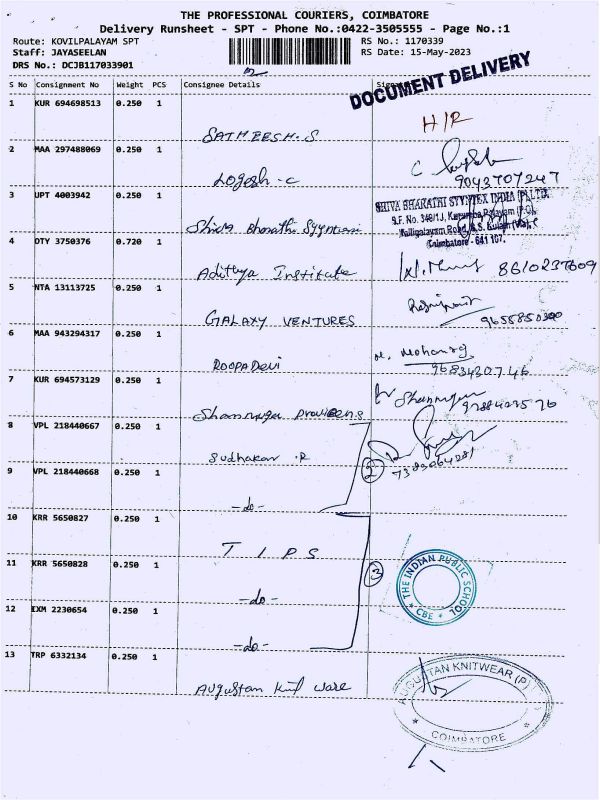 THE PROFESSIONAL COURIERS, COIMBATORE
Delivery Runsheet - SPT - Phone No.:0422-3505555 - Page No.:1
Route: KOVILPALAYAM SPT
RS No.: 1170339
Staff: JAYASEELAN
RS Date: 15-May-2023
DRS No.: DCJB117033901
DOCUMENT DELIVERY
S No Consignment No Weight PCS Consignee Details
1 KUR 694698513 0.250 1 SATHEESH.S H/R
2 MAA 297488069 0.250 1 Logesh-c 9043707247
3 UPT 4003942 0.250 1 Shiva Bharathi
SHIVA BHARATHI SYNTEX INDIA (P) LTD.
S.F. No. 349/1J,
Coimbatore - 641 107.
4 DTY 3750376 0.720 1 Adithya Institute 8610237609
5 NTA 13113725 0.250 1 GALAXY VENTURES
6 MAA 943294317 0.250 1 ROOPA Devi
7 KUR 694573129 0.250 1 Shanmuga
8 VPL 218440667 0.250 1 Sudhakar .R 7383064281
2
9 VPL 218440668 0.250 1 -do-
10 KRR 5650827 0.250 1 T I P S
11 KRR 5650828 0.250 1 -do-
3
THE INDIAN PUBLIC SCHOOL
CBE
12 EXM 2230654 0.250 1 -do-
13 TRP 6332134 0.250 1 Augustan Knit Ware
AUGUSTAN KNITWEAR (P)
COIMBATORE